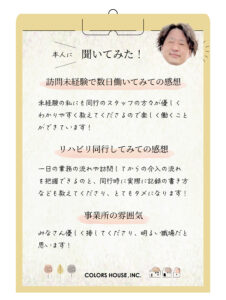 本人に 聞いてみた！
訪問未経験で数日働いてみての感想
未経験の私にも同行のスタッフの方々が優しく
わかりやすく教えてくださるので楽しく働くこと
ができています！
リハビリ同行してみての感想
一日の業務の流れや訪問してからの介入の流れ
を把握できるのと、同行時に実際に記録の書き方
なども教えてくださり、とてもタメになります！
事業所の雰囲気
みなさん優しく接してくださり、明るい職場だと
思います！
COLORS HOUSE, INC.